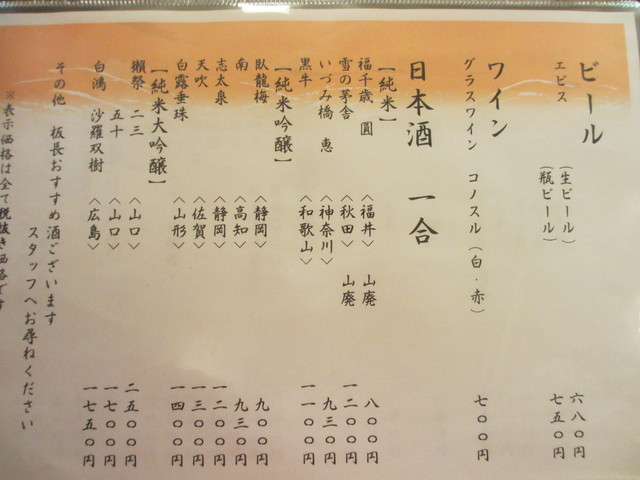 ビール
エビス （生ビール） 六八〇円
（瓶ビール） 七五〇円
ワイン
グラスワイン コノスル（白・赤） 七〇〇円
日本酒 一合
【純米】
福千歳 圓 〈福井〉 山廃 八〇〇円
雪の茅舎 〈秋田〉 山廃 一二〇〇円
いづみ橋 恵 〈神奈川〉 九三〇円
黒牛 〈和歌山〉 一一〇〇円
【純米吟醸】
臥龍梅 〈静岡〉 九〇〇円
南 〈高知〉 九三〇円
志太泉 〈静岡〉 一二〇〇円
天吹 〈佐賀〉 一三〇〇円
白露垂珠 〈山形〉 一四〇〇円
【純米大吟醸】
獺祭 二三 〈山口〉 二五〇〇円
五十 〈山口〉 一七〇〇円
白鴻 沙羅双樹 〈広島〉 一七五〇円
その他 板長おすすめ酒ございます
スタッフへお尋ねください
※表示価格は全て税抜き価格です